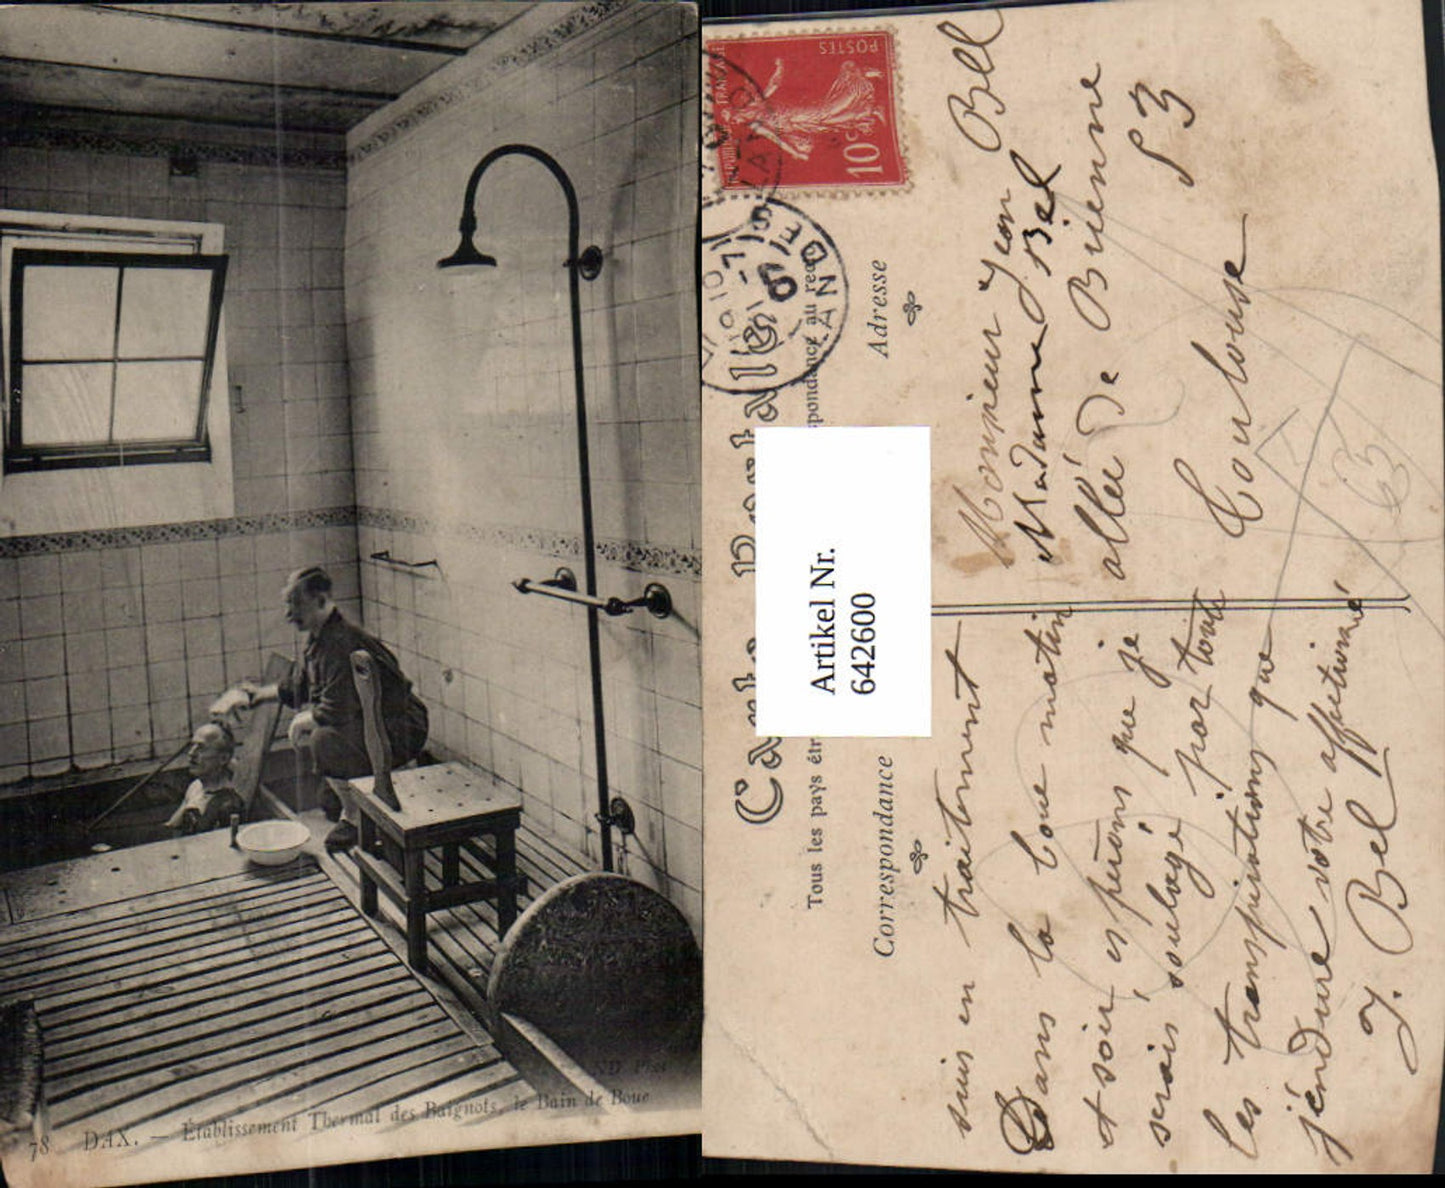 78 DAX. — Établissement Thermal des Baignots, le Bain de Boue
ND Phot
Carte Postale
Tous les pays étr
pondance au rec
Correspondance
Adresse
POSTES
FRANÇAISE
10c
1910
LANDES
Artikel Nr.
642600
suis en traitement
Dans la boue matin
et soir espérons que je
serais soulagé par toute
les transpirations que
j'éndure votre affectionné
J. Bel
Monsieur Jean Bell
Madame Bel
allée de Brienne
53
Toulouse